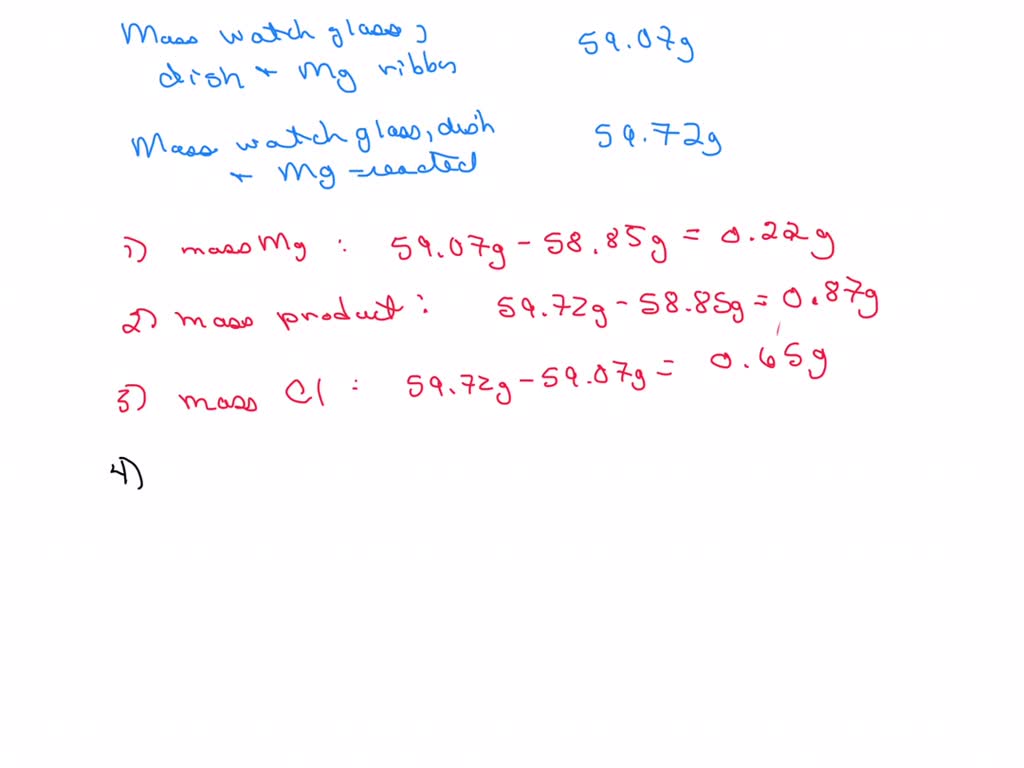 Mass watch glass,
dish + Mg ribbon
59.07g
Mass watch glass, dish
+ Mg - reacted
59.72g
1) mass Mg : 59.07g - 58.85g = 0.22g
2) mass product : 59.72g - 58.85g = 0.87g
3) mass Cl : 59.72g - 59.07g = 0.65g
4)